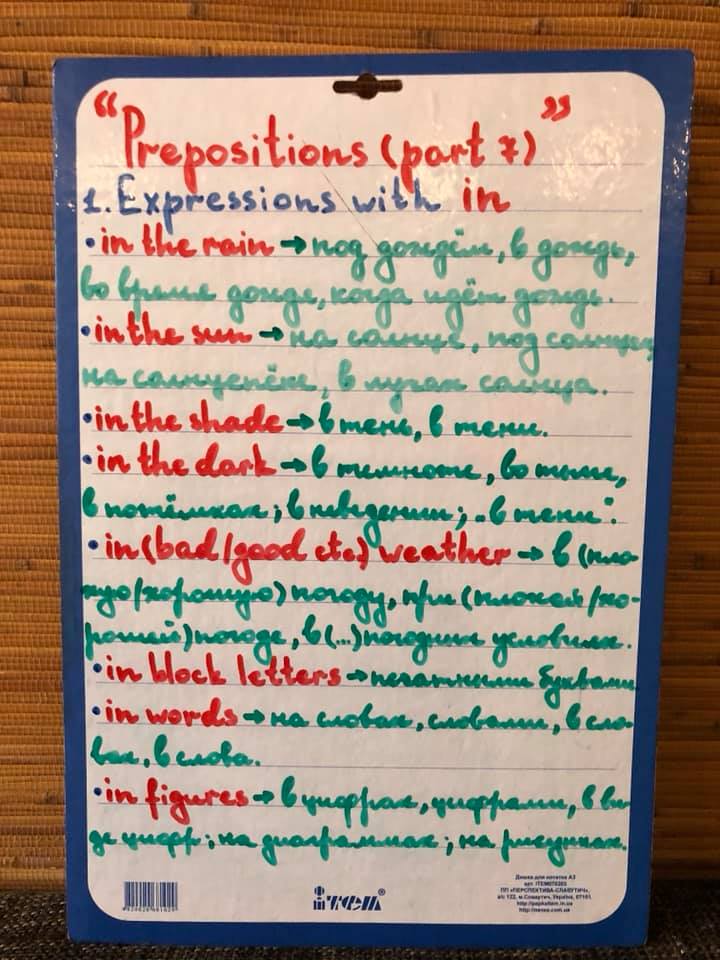 “Prepositions (part 7)”
1. Expressions with in
• in the rain → под дождём, в дождь,
во время дождя, когда идёт дождь.
• in the sun → на солнце, под солнцем,
на солнцепёке, в лучах солнца.
• in the shade → в тень, в тени.
• in the dark → в темноте, во тьме,
в потёмках; в неведении; „в тени“.
• in (bad/good etc.) weather → в (пло-
хую/хорошую) погоду, при (плохой/хо-
рошей) погоде, в (...) погодных условиях.
• in block letters → печатными буквами
• in words → на словах, словами, в сло-
вах, в слова.
• in figures → в цифрах, цифрами, в ви-
де цифр; на диаграммах; на рисунках.
ITEM®
Дошка для нотаток А3
арт. ITEM070203
ПП «ПЕРСПЕКТИВА-СЛАВУТИЧ»,
а/с 122, м.Славутич, Україна, 07101,